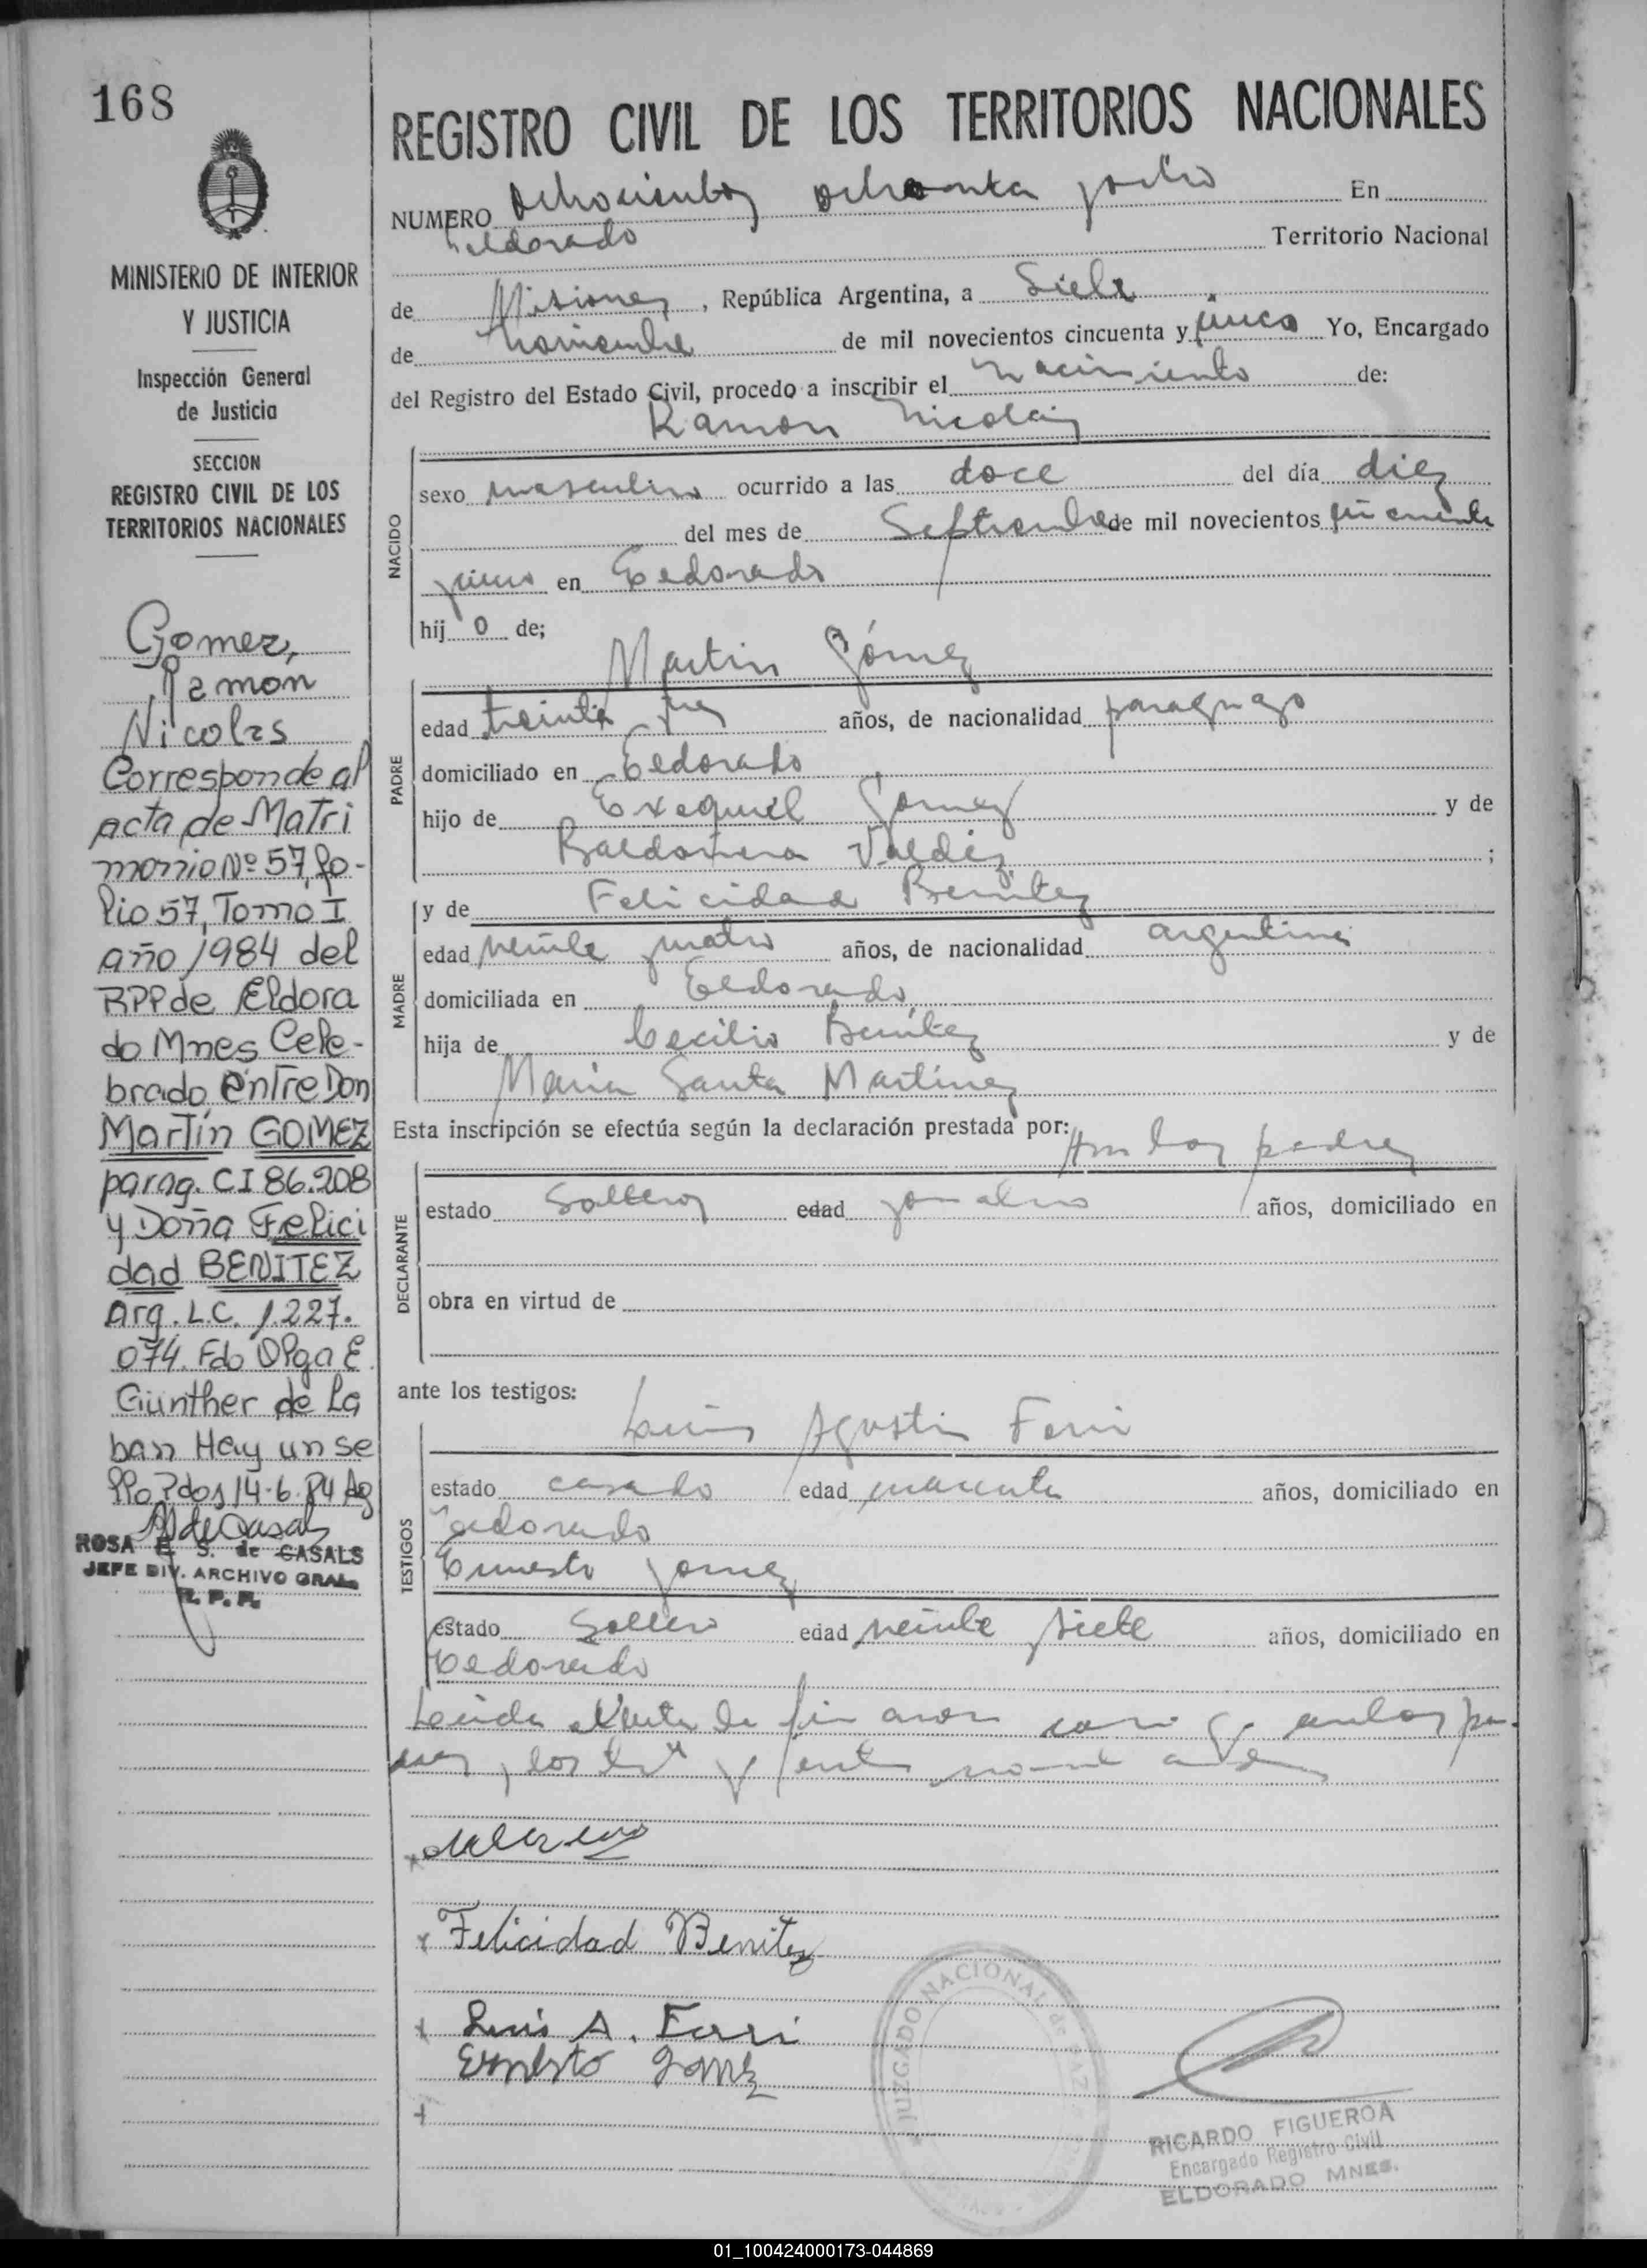 168
REGISTRO CIVIL DE LOS TERRITORIOS NACIONALES
MINISTERIO DE INTERIOR
Y JUSTICIA
Inspección General
de Justicia
SECCION
REGISTRO CIVIL DE LOS
TERRITORIOS NACIONALES
Gomez,
Ramon
Nicolas
Corresponde al
acta de Matri
monio Nº 57, fo-
lio 57, Tomo I
año 1984 del
RPP de Eldora
do Mnes Cele-
brado entre Don
Martín GOMEZ
parag. CI 86.208
y Doña Felici
dad BENITEZ
Arg. L.C. 1.227.
074. Fdo Olga E
Günther de La
ban Hay un se
llo Pdos 14-6-84
ROSA E. S. de CASALS
JEFE DIV. ARCHIVO GRAL.
R. P. P.
NUMERO Ochocientos ochenta y ocho En
Eldorado Territorio Nacional
de Misiones, República Argentina, a Siete
de Noviembre de mil novecientos cincuenta y cinco Yo, Encargado
del Registro del Estado Civil, procedo a inscribir el nacimiento de:
Ramon Nicolás
NACIDO
sexo masculino ocurrido a las doce del día diez
del mes de Septiembre de mil novecientos cincuenta
y cinco en Eldorado
hij o de;
Martin Gómez
PADRE
edad treinta y tres años, de nacionalidad paraguayo
domiciliado en Eldorado
hijo de Exequiel Gomez y de
Baldomera Valdéz ;
y de Felicidad Benitez
MADRE
edad veinte y cuatro años, de nacionalidad argentina
domiciliada en Eldorado
hija de Cecilio Benítez y de
Maria Santa Martinez
Esta inscripción se efectúa según la declaración prestada por: Ambos padres
DECLARANTE
estado Solteros edad años, domiciliado en
obra en virtud de
ante los testigos:
Luis Agustin Ferri
TESTIGOS
estado casado edad cuarenta años, domiciliado en
Eldorado
Ernesto Gomez
estado Soltero edad veinte y siete años, domiciliado en
Eldorado
Leida el acta la firmaron ambos pa-
dres, los
Felicidad Benitez
Luis A. Ferri
Ernesto Gomez
JUZGADO NACIONAL de PAZ
RICARDO FIGUEROA
Encargado Registro Civil
ELDORADO MNES.
01_100424000173-044869